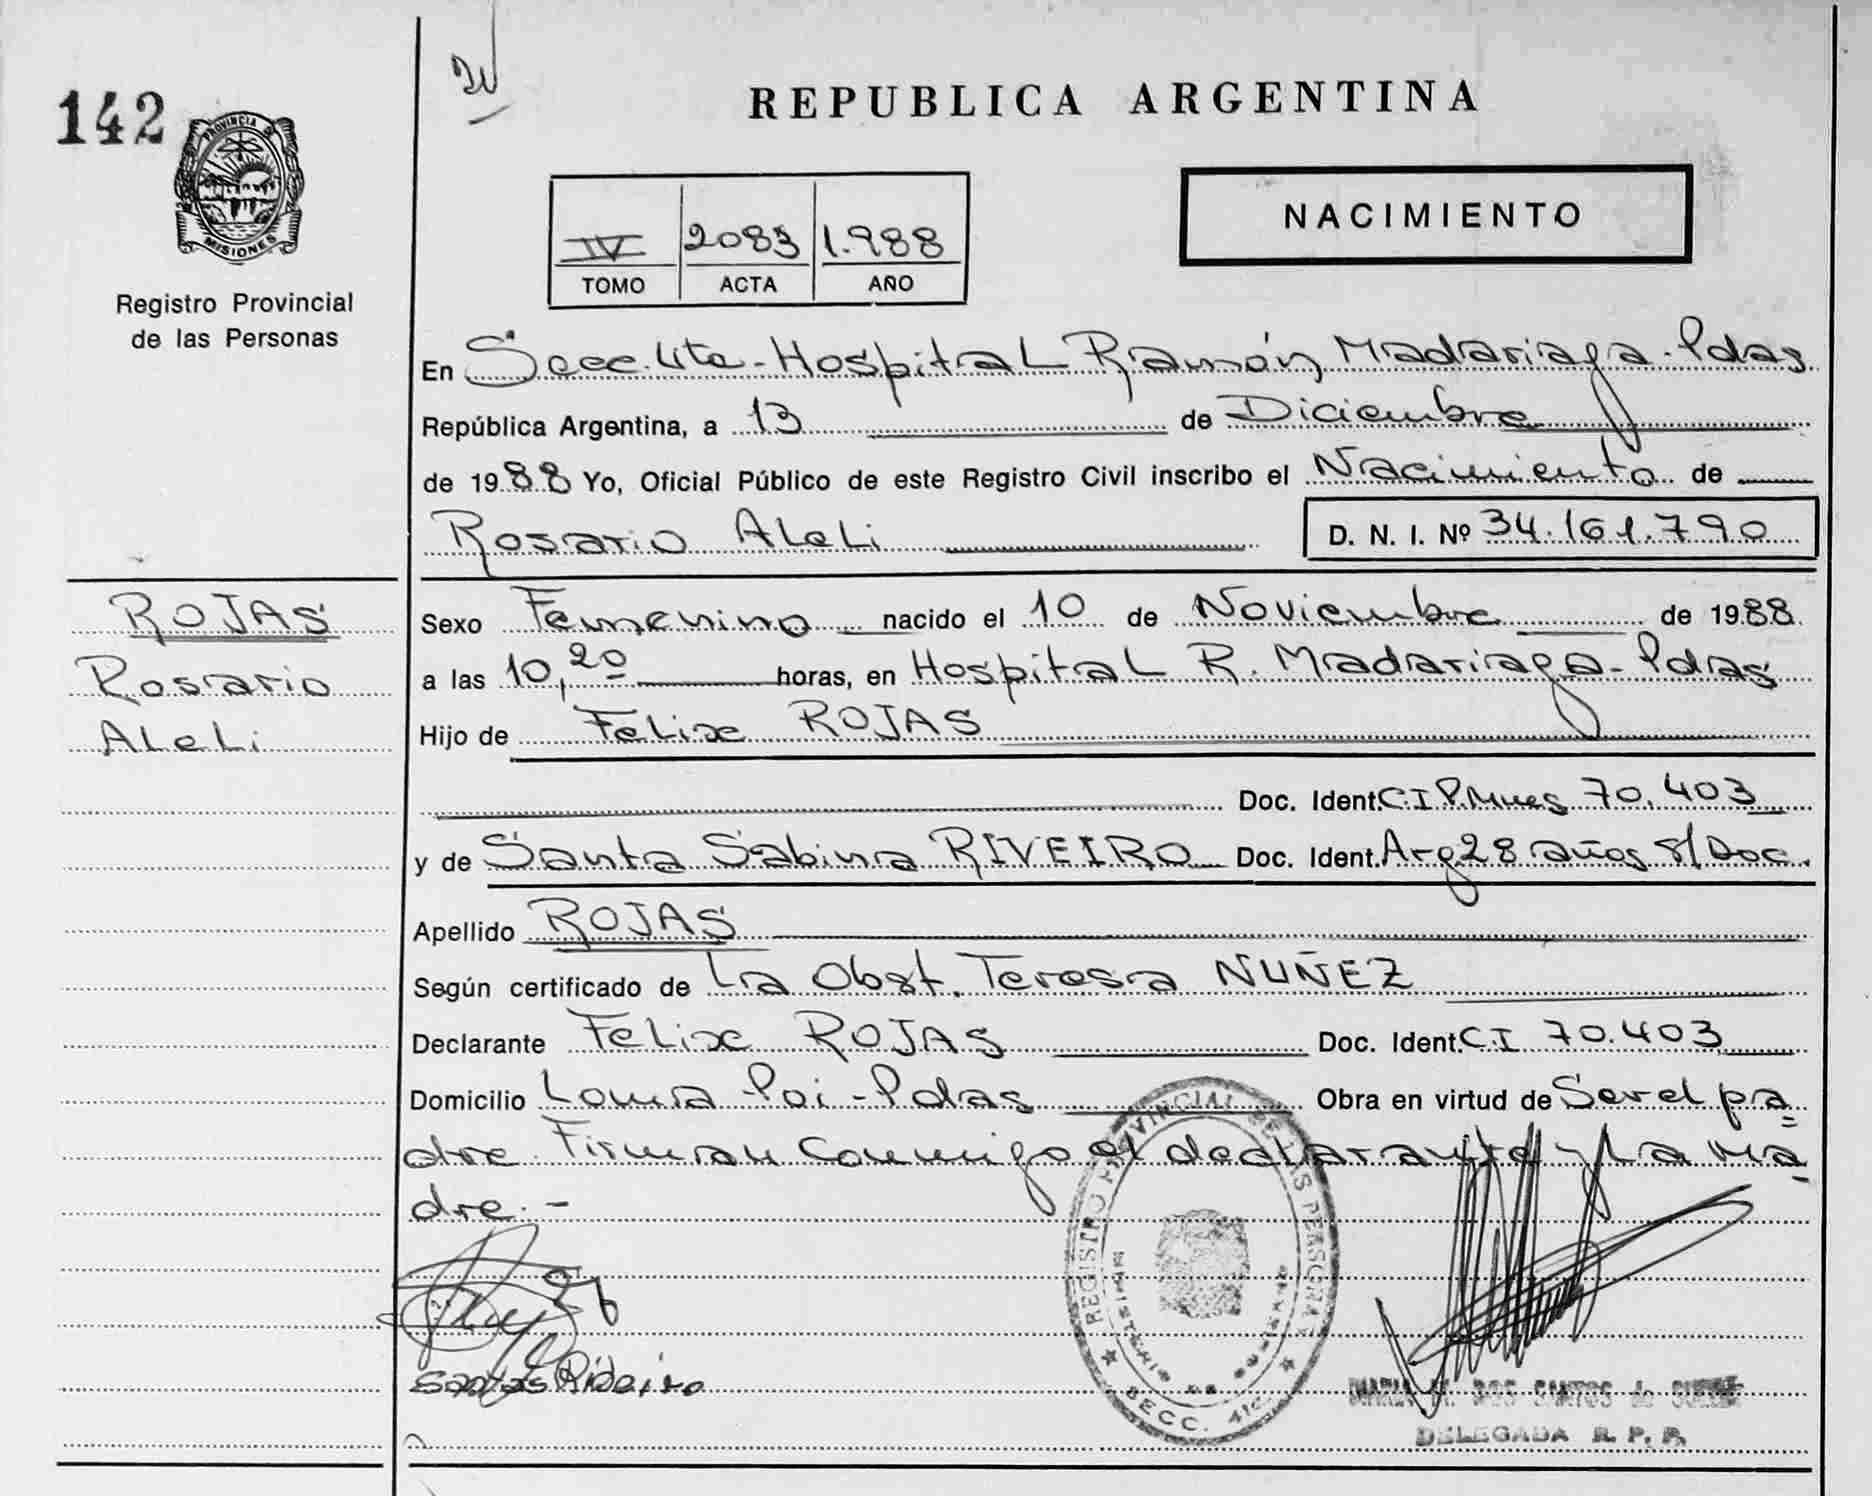 142
PROVINCIA DE
MISIONES
Registro Provincial
de las Personas
REPUBLICA ARGENTINA
IV 2083 1.988
TOMO ACTA AÑO
NACIMIENTO
En Secc. 4ta - Hospital Ramón Madariaga - Pdas
República Argentina, a 13 de Diciembre
de 1988 Yo, Oficial Público de este Registro Civil inscribo el Nacimiento de
Rosario Aleli D. N. I. Nº 34.161.790
ROJAS
Rosario
Aleli
Sexo Femenino nacido el 10 de Noviembre de 1988
a las 10,20 horas, en Hospital R. Madariaga - Pdas
Hijo de Felix ROJAS
Doc. Ident. C.I P. Mnes 70.403
y de Santa Sabina RIVEIRO Doc. Ident. Arg 28 años s/Doc.
Apellido ROJAS
Según certificado de La Obst. Teresa NUÑEZ
Declarante Felix ROJAS Doc. Ident. C.I 70.403
Domicilio Loma Poi - Pdas Obra en virtud de Ser el pa
dre. Firman Conmigo el declarante y La ma
dre. -
REGISTRO PROVINCIAL DE LAS PERSONAS
MINISTERIO DE GOBIERNO
SECC. 4ta.
DOS SANTOS de
DELEGADA R. P. P.